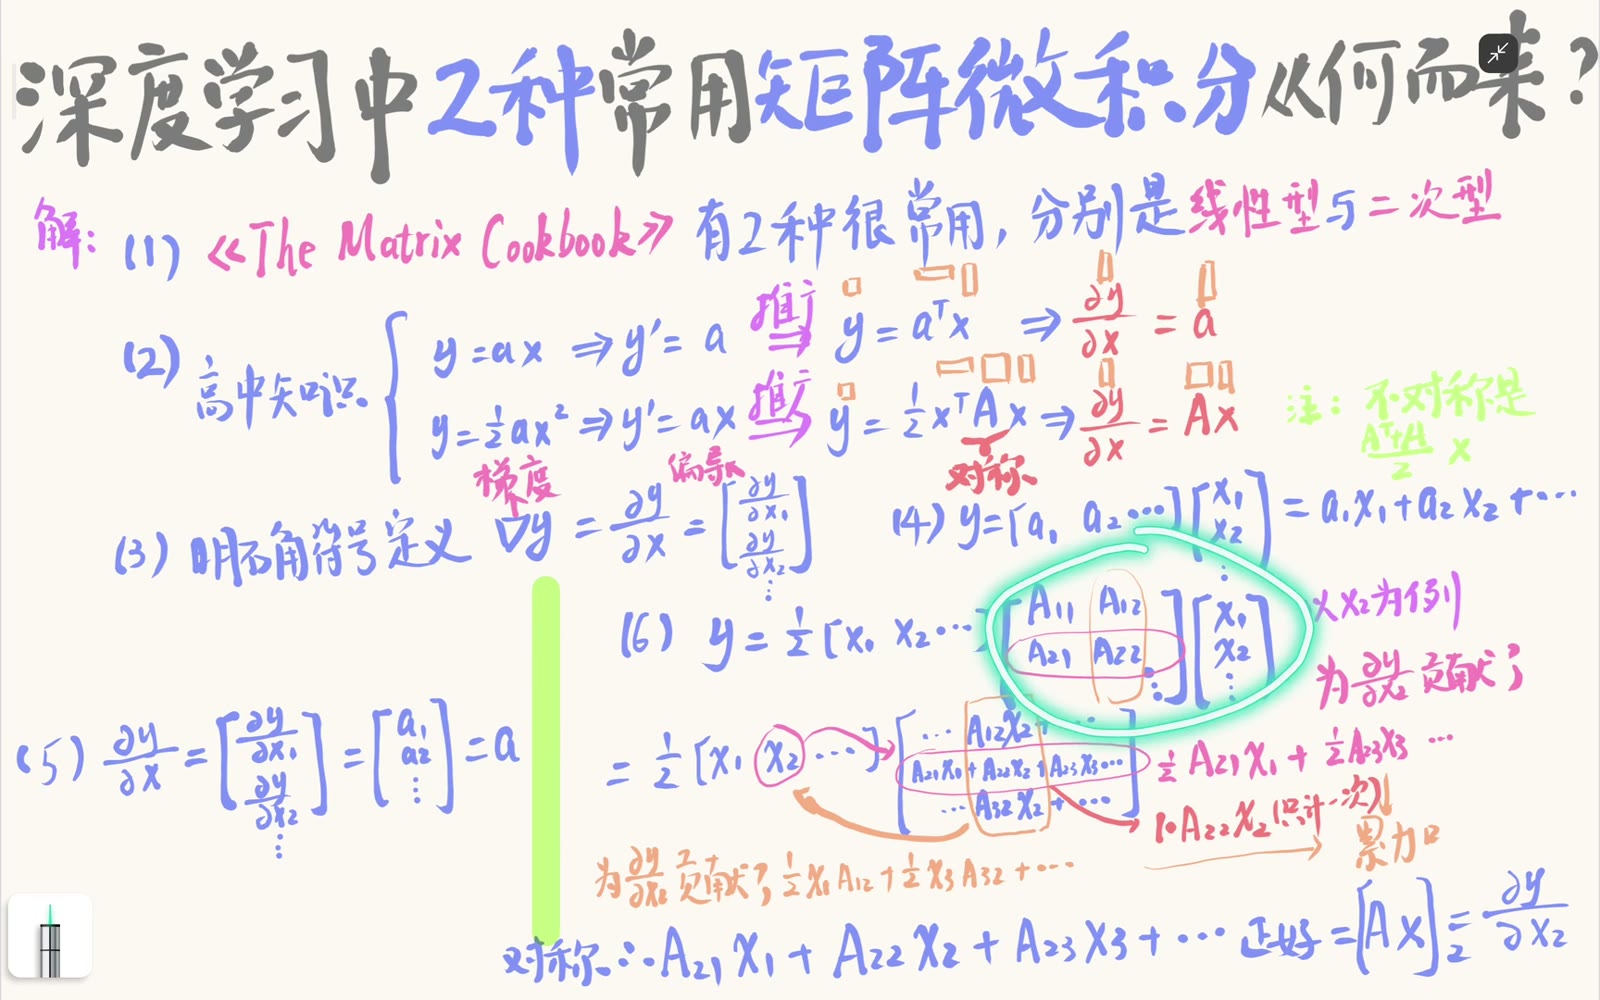 深度学习中2种常用矩阵微积分从何而来?
解: (1) 《The Matrix Cookbook》有2种很常用, 分别是线性型与二次型
(2) 高中知识 { y=ax ⇒ y'=a 推广 ⇒ y=aᵀx ⇒ ∂y/∂x = a
y=½ax² ⇒ y'=ax 推广 ⇒ y=½xᵀAx ⇒ ∂y/∂x = Ax
对称
注: 不对称是 (Aᵀ+A)/2 x
梯度 偏导
(3) 明确符号定义 ∇y = ∂y/∂x = [∂y/∂x₁ ∂y/∂x₂ ⋮]
(4) y=[a₁ a₂ ⋯][x₁ x₂ ⋮] = a₁x₁+a₂x₂+⋯
(5) ∂y/∂x = [∂y/∂x₁ ∂y/∂x₂ ⋮] = [a₁ a₂ ⋮] = a
(6) y=½[x₁ x₂ ⋯][A₁₁ A₁₂ A₂₁ A₂₂ ⋱][x₁ x₂ ⋮]
以x₂为例
为∂y/∂x₂贡献了
=½[x₁ x₂ ⋯][⋯ A₁₂x₂+ ⋯ A₂₁x₁+A₂₂x₂+A₂₃x₃⋯ ⋯ A₃₂x₂+⋯]
½A₂₁x₁+½A₂₃x₃ ⋯
A₂₂x₂(只计一次)
累加
为∂y/∂x₂贡献了½x₁A₁₂+½x₃A₃₂+⋯
对称∴A₂₁x₁+A₂₂x₂+A₂₃x₃+⋯ 正好=[Ax]₂=∂y/∂x₂